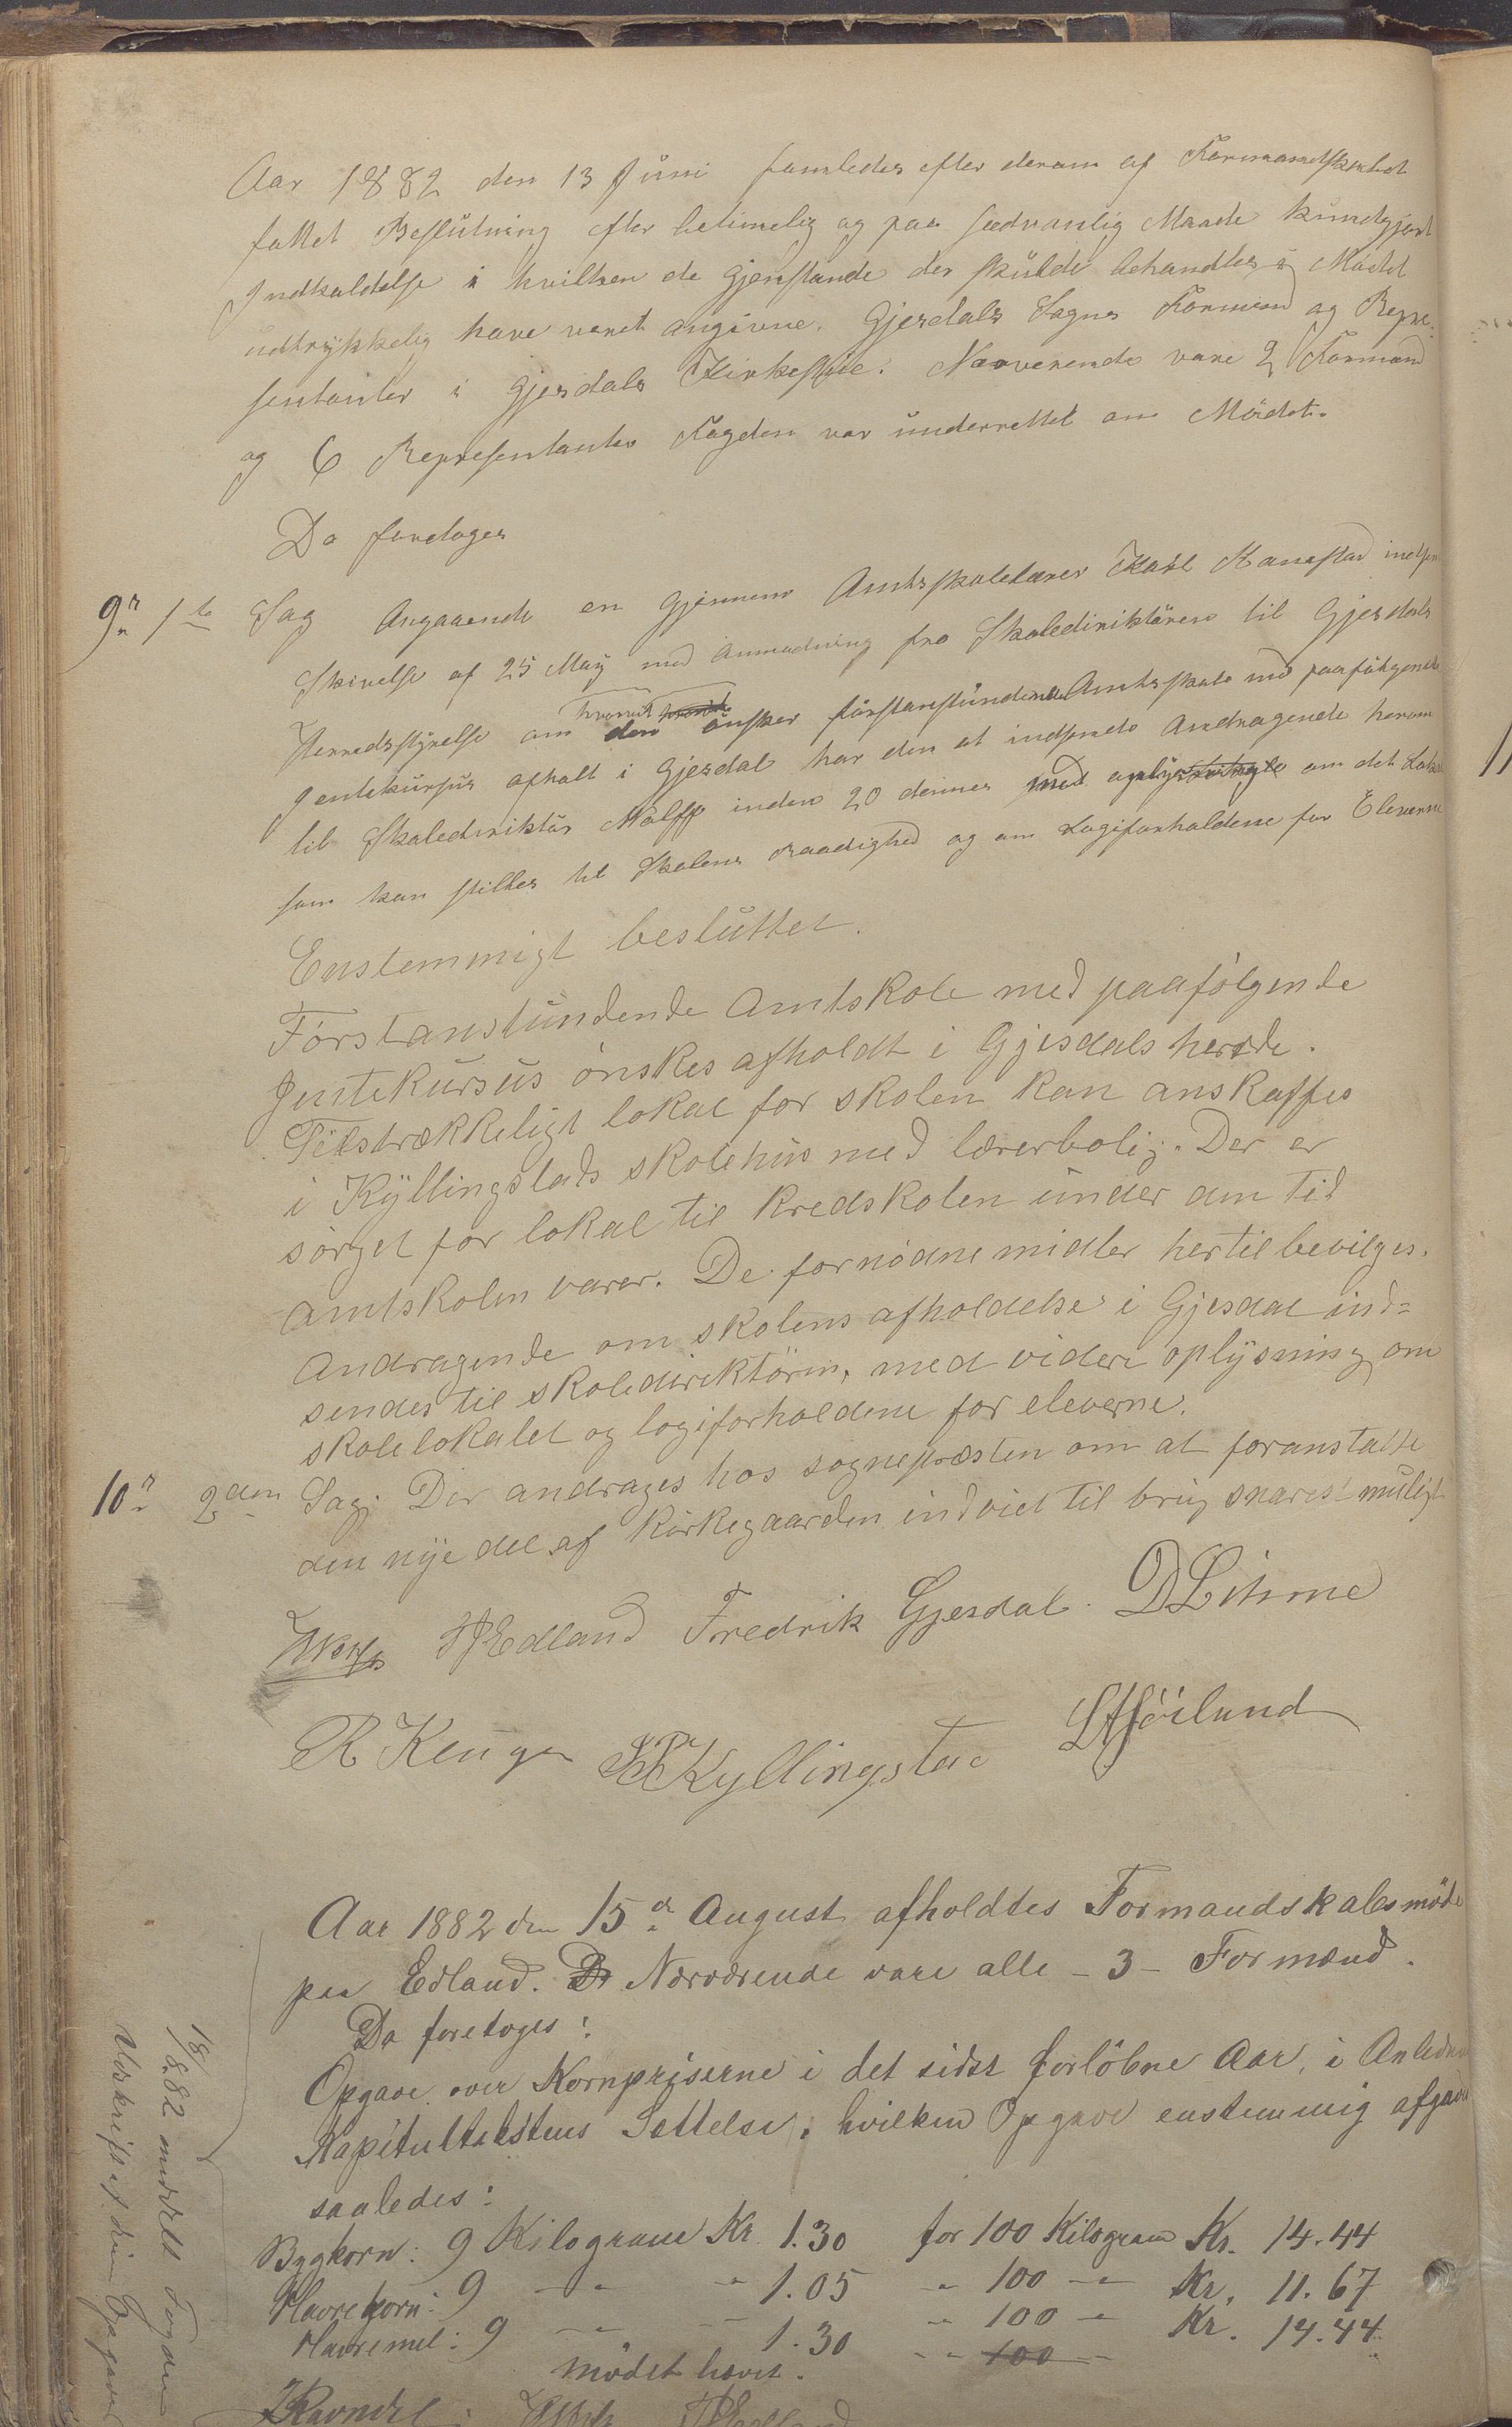 Aar 1882 den 13 Juni samledes efter derom af Formandskabet
fattet Beslutning efter betimelig og paa sædvanlig Maade kundgjort
Indkaldelse i hvilken de Gjenstande der skulde behandles i Mödet
udtrykkelig have været angivne. Gjesdals Sogns Formend og Repre-
sentanter i Gjesdals Kirkestue. Nærverende vare 2 Formend
og 6 Representanter Fogden var underrettet om Mödet.
Da foretoges
9r 1te Sag Angaaende en gjennem Amtsskolelærer Kanestad indsen
Skrivelse af 25 May med Anmodning fra Skoledirektören til Gjesdals
Herredsstyrelse om hvorvidt den önsker förstanstundende Amtsskole med paafölgende
Jentekursus afholt i Gjesdal har den at indsende Andragende herom
til Skoledirektör inden 20 dennes med oplysninger om det Lokal
som kan stilles til Skolens Raadighed og om Logiforholdene for Eleverne
Enstemmigt besluttet.
Förstanstundende Amtskole med paafölgende
Jentekursus önskes afholdt i Gjesdals herede.
Tilstrækkeligt lokal for skolen kan anskaffes
i Kyllingstads skolehus med lærerbolig. Der er
sörget for lokal til Kredskolen under den tid
Amtskolen varer. De fornödne midler hertil bevilges.
Andragende om skolens afholdelse i Gjesdal ind-
sendes til skoledirektören, med videre oplysning om
skolelokalet og logiforholdene for eleverne.
10r 2den Sag. Der andrages hos sognepræsten om at foranstalte
den nye del af Kirkegaarden indviet til brug snarest muligt
Edland Fredrik Gjesdal. D Lihme
R Kenger Kyllingstad
Aar 1882 den 15de August afholdtes Formandskabsmöde
paa Edland. Nærværende vare alle - 3 - Formænd.
Da foretoges:
Opgave over Kornpriserne i det sidst forlöbne Aar, i Anledn
Kapitultakstens Settelse, hvilken Opgave enstemmig afgaves
saaledes:
Bygkorn: 9 Kilogram Kr. 1.30 for 100 Kilogram Kr. 14.44
Havrekorn: 9 - " - " 1.05 - " 100 - " Kr. 11.67
Havremel: 9 - " - 1.30 - " 100 - " Kr. 14.44
- " 100 -
Mödet hævet.
Ravndal
18/8 82 meddelt Fogden
Udskrift af denne Opgave